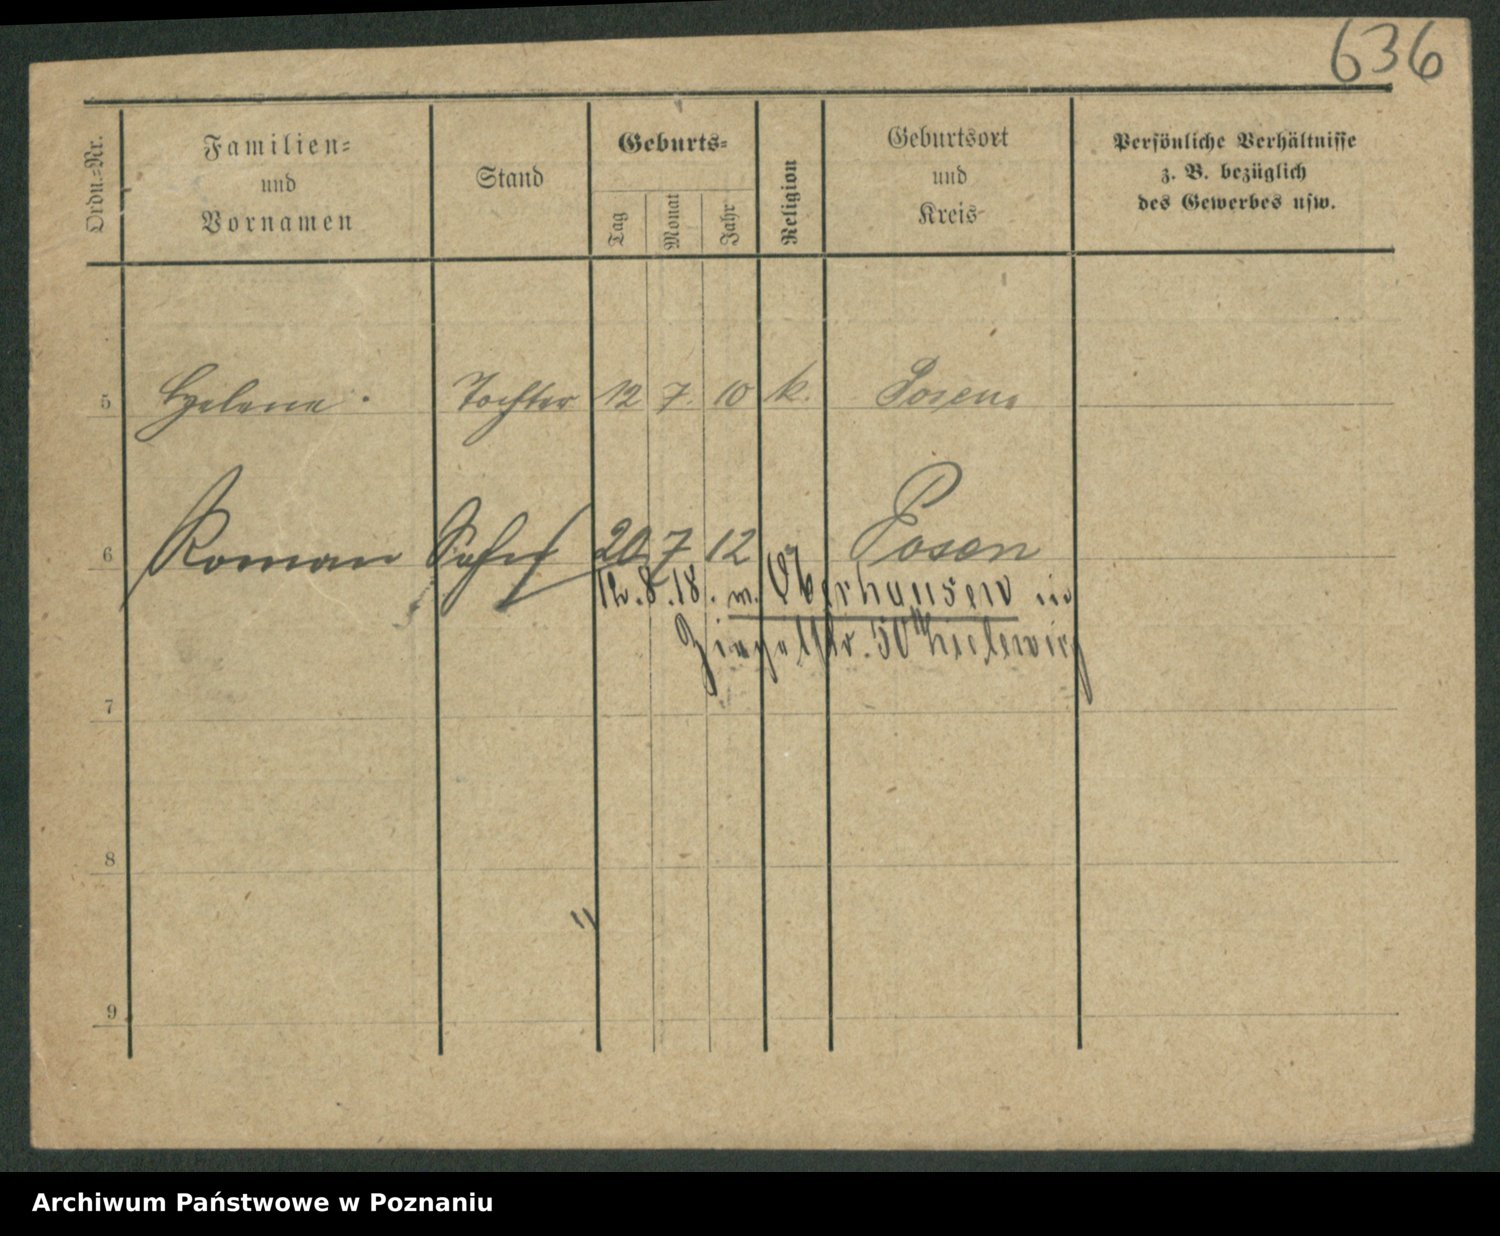 636
Ordn.-Nr.
Familien-
und
Vornamen
Stand
Geburts-
Tag
Monat
Jahr
Religion
Geburtsort
und
Kreis
Persönliche Verhältnisse
z. B. bezüglich
des Gewerbes usw.
5 Helene. Tochter 12 7. 10 k. Posen.
6 Roman Sohn 20 7 12 Posen
12.8.18. Oberhausen
50
7
8
9
Archiwum Państwowe w Poznaniu